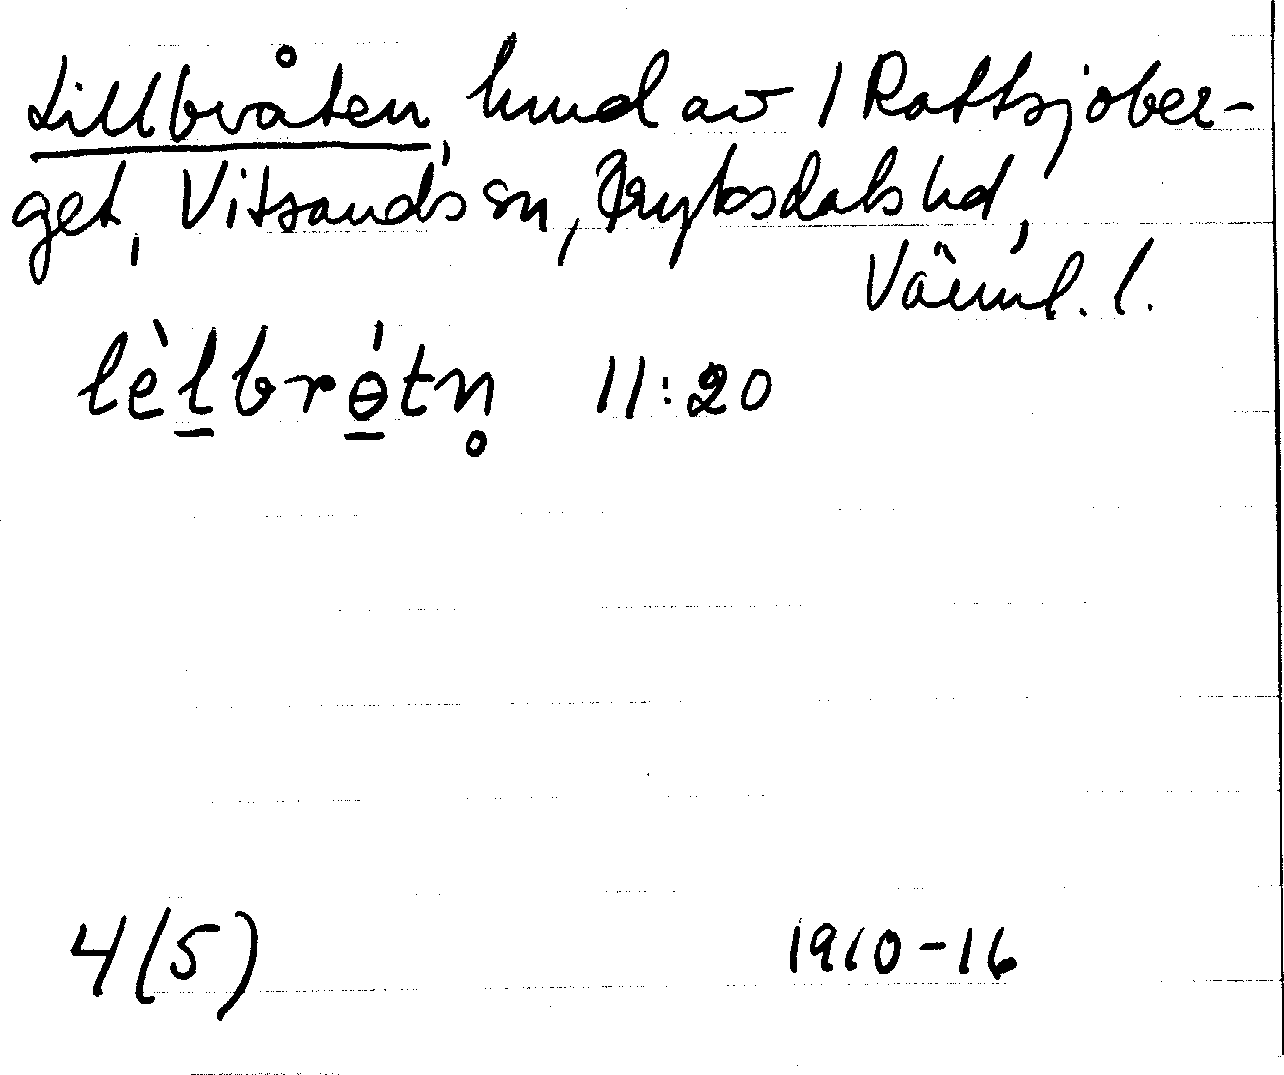 Lillbråten, hmd av 1 Rattsjöber-
get, Vitsands sn, Fryksdals hd,
Värml. l.
lèl̠brɵ̠́tn̥ 11:20
4(5) 1910-16